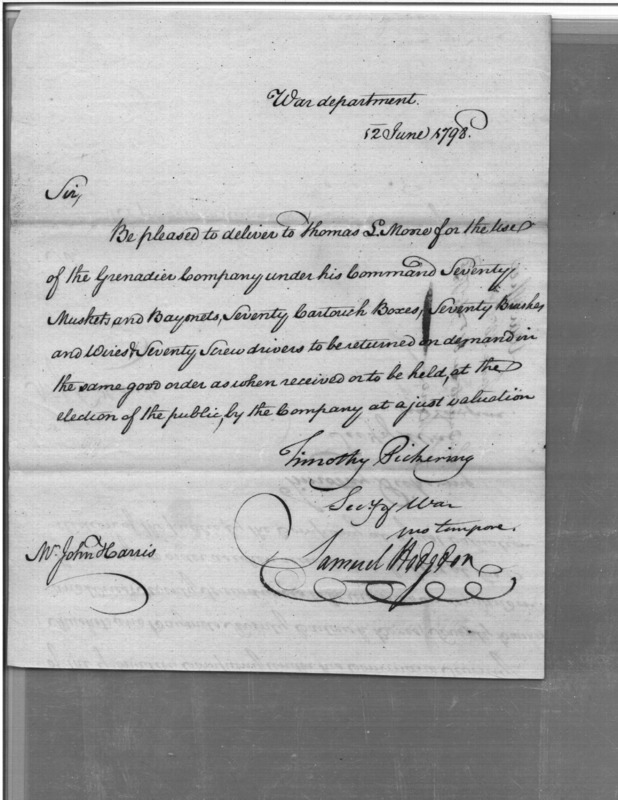 War department.
12 June 1798.
Sir,
Be pleased to deliver to Thomas L. Mone for the Use
of the Grenadier Company under his Command Seventy
Muskets and Bayonets, Seventy Cartouch Boxes, Seventy Brushes
and Wires & Seventy Screw drivers to be returned on demand in
the same good order as when received or to be held, at the
election of the public, by the Company at a just valuation
Timothy Pickering
Secy. of War
pro tempore.
Samuel Hodgdon
Mr. John Harris